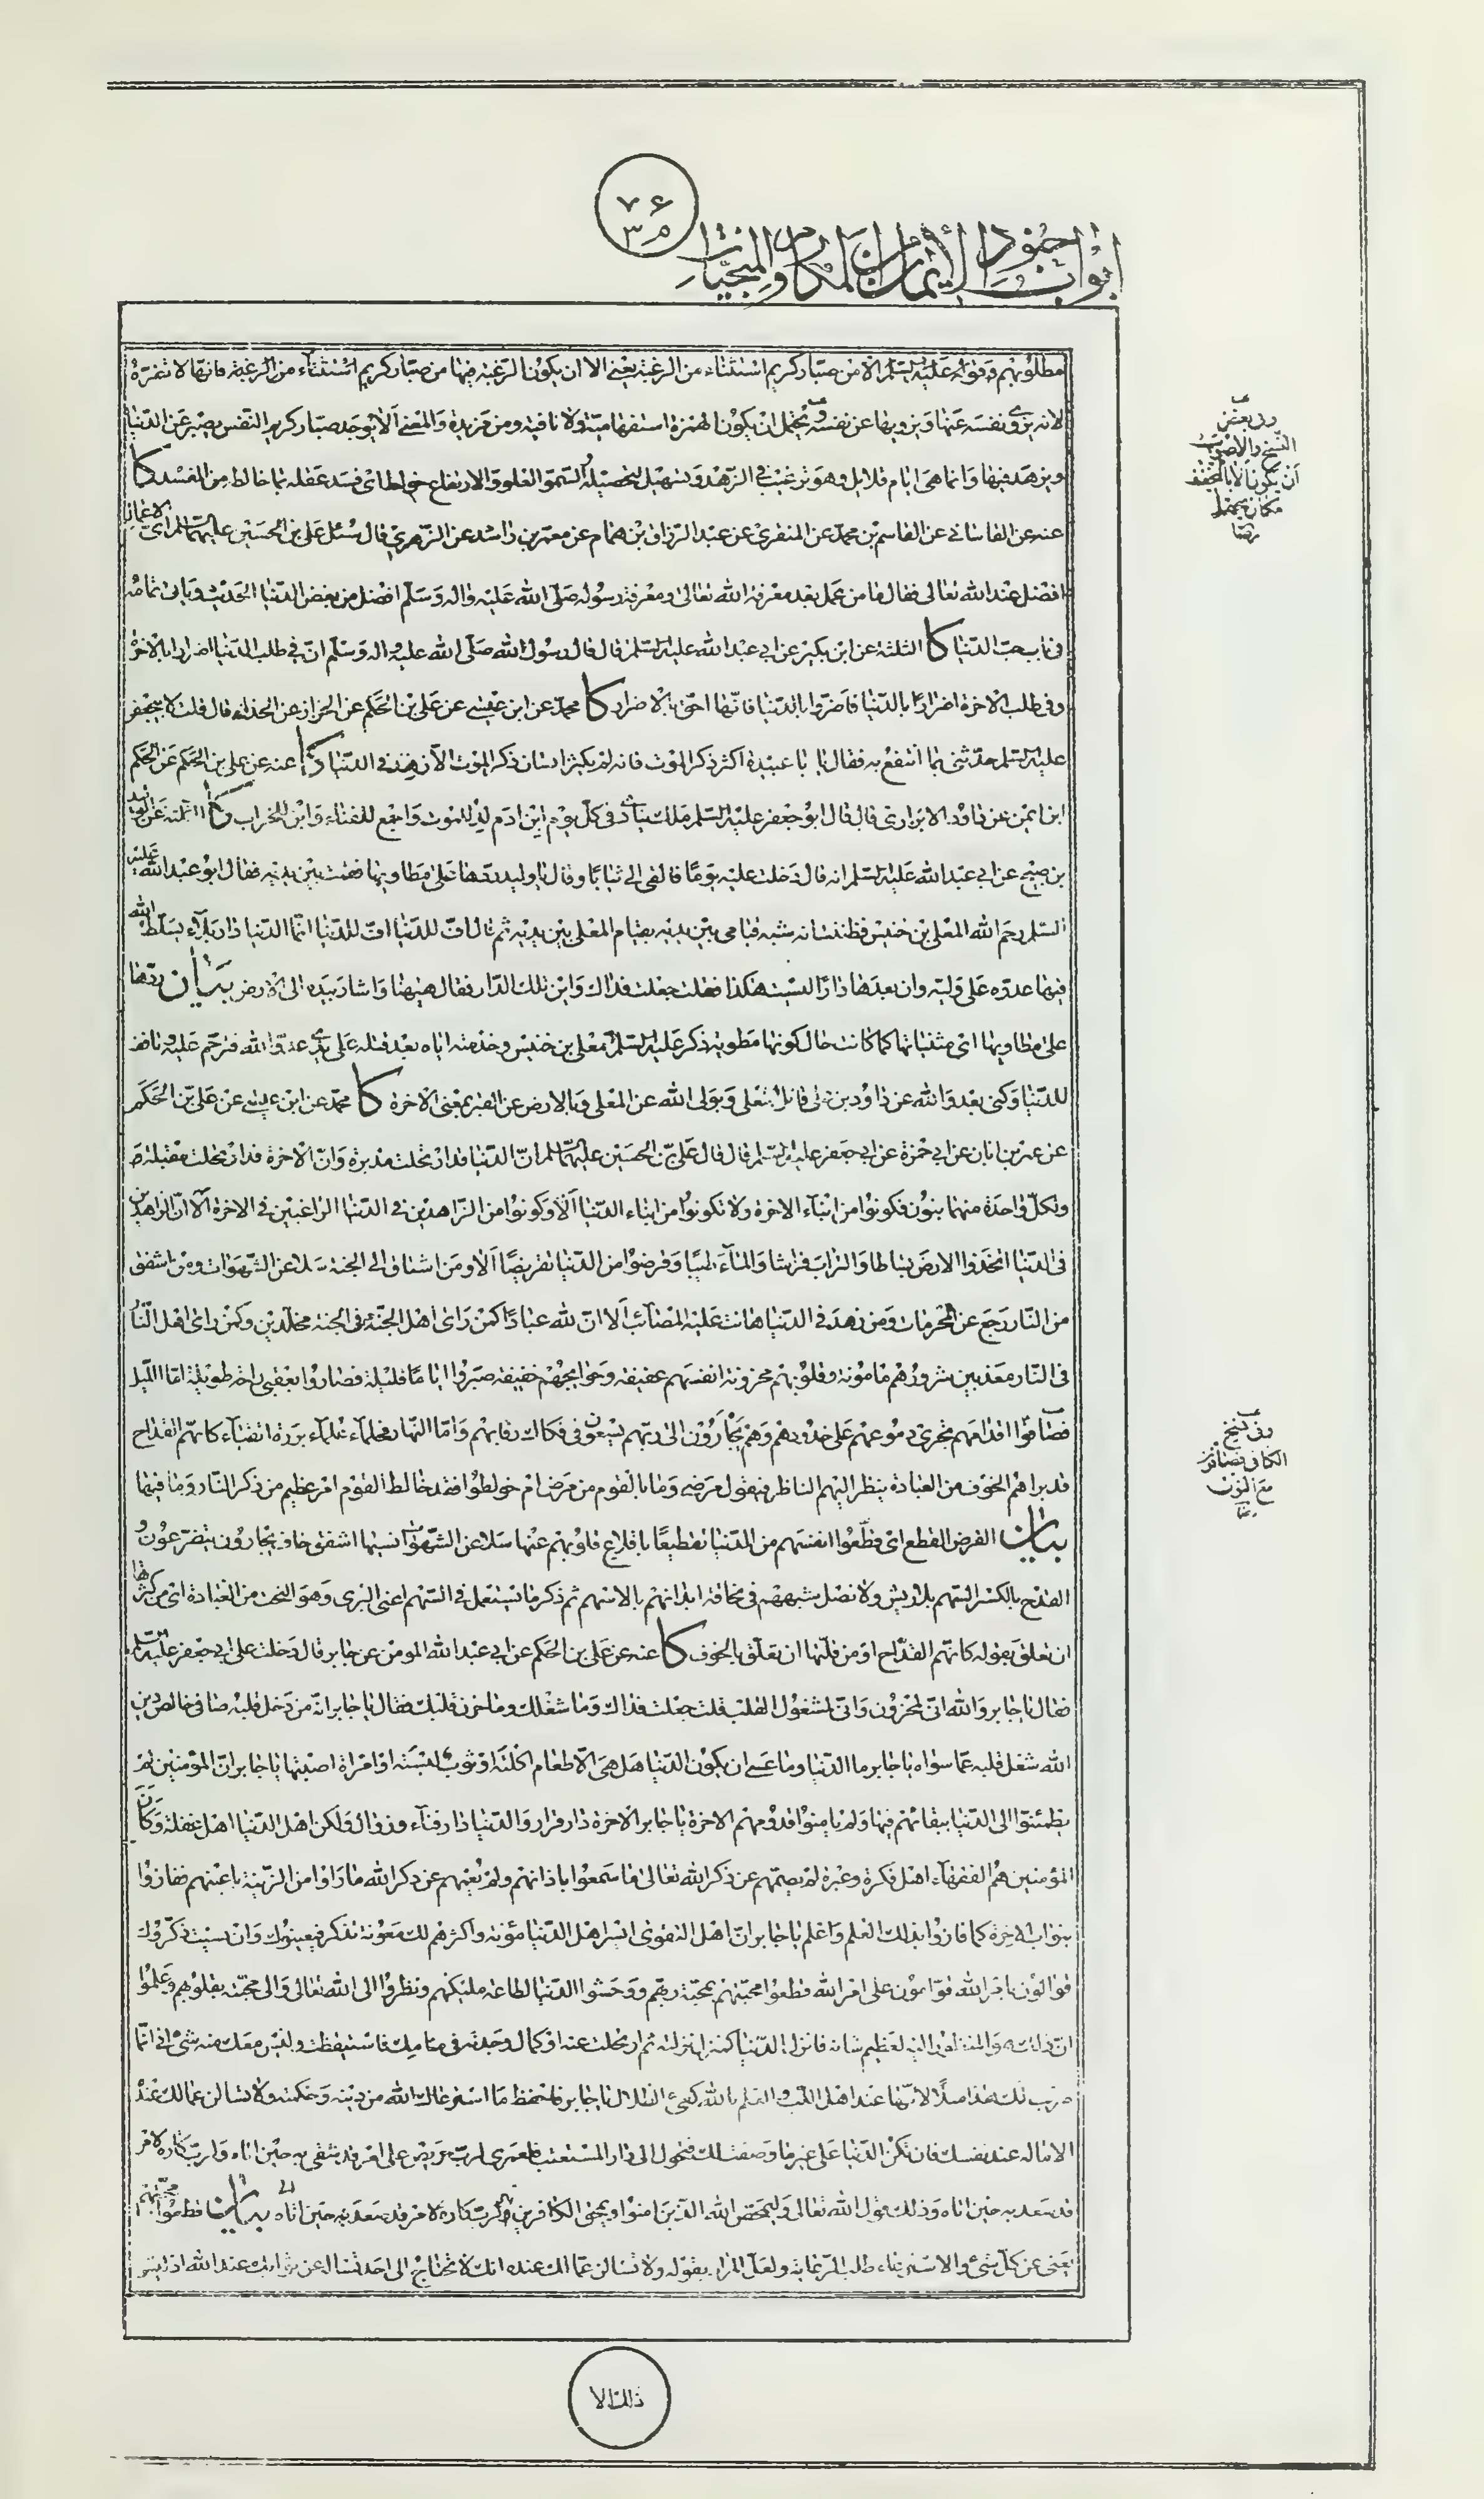 ٧٦
٣ م
ابواب جنود الايمان من المكارم والمنجيات
مطلوبهم وقوله عليه السلم الا من صبار كريم استثناء من الرغبة يعنى الا ان يكون الرغبة فيها من صبار كريم استثناء من الرغبة فانها لا تضره
لانه يزوى نفسه عنها ويزويها عن نفسه يحتمل ان يكون الهمزة استفهامية ولا نافية ومن مزيدة والمعنى الا يوجد صبار كريم النفس يصبر عن الدنيا
ويزهد فيها وانما هى ايام قلايل وهو ترغيب فى الزهد وتسهيل لتحصيله والسمو العلو والارتفاع خولط اى فسد عقله بما خالط من المفسد كا
عنه عن القاسانى عن القاسم بن محمد عن المنقرى عن عبد الرزاق بن همام عن معمر بن راشد عن الزهرى قال سئل على بن الحسين عليهما السلم اى الاعمال
افضل عند الله تعالى فقال ما من عمل بعد معرفة الله تعالى ومعرفة رسوله صلى الله عليه واله وسلم افضل من بغض الدنيا الحديث وياتى تمامه
فى باب حب الدنيا كا الثلثة عن ابن بكير عن ابى عبد الله عليه السلم قال قال رسول الله صلى الله عليه واله وسلم ان فى طلب الدنيا اضرارا بالاخرة
وفى طلب الاخرة اضرارا بالدنيا فاضروا بالدنيا فانها احق بالاضرار كا محمد عن ابن عيسى عن على بن الحكم عن الخراز عن الحذاء قال قلت لابى جعفر
عليه السلم حدثنى بما انتفع به فقال يا با عبيدة اكثر ذكر الموت فانه لم يكثر انسان ذكر الموت الا زهد فى الدنيا كا عنه عن على بن الحكم عن الحكم
ابن ايمن عن داود الابزارى قال قال ابو جعفر عليه السلم ملك ينادى فى كل يوم ابن ادم لد للموت واجمع للفناء وابن للخراب كا الثلثة عن الوليد
بن صبيح عن ابى عبد الله عليه السلم انه قال دخلت عليه يوما فالقى الى ثيابا وقال يا وليد ردها على مطاويها فقمت بين يديه فقال ابو عبد الله عليه
السلم رحم الله المعلى بن خنيس فظننت انه شبه قيامى بين يديه بقيام المعلى بين يديه ثم قال اف للدنيا اف للدنيا انما الدنيا دار بلاء يسلط الله
فيها عدوه على وليه وان بعدها دارا ليست هكذا فقلت جعلت فداك واين تلك الدار فقال هيهنا واشار بيده الى الارض بيان ردها
على مطاويها اى مثنياتها كما كانت حال كونها مطوية ذكر عليه السلم معلى بن خنيس وخدمته اياه بعد قتله على يدى عدو الله فترحم عليه وتافف
للدنيا وكنى بعدو الله عن داود بن على قاتل المعلى وبولى الله عن المعلى وبالارض عن القبر بمعنى الاخرة كا محمد عن ابن عيسى عن على بن الحكم
عن عمر بن ابان عن ابى حمزة عن ابى جعفر عليه السلم قال قال على بن الحسين عليهما السلم ان الدنيا قد ارتحلت مدبرة وان الاخرة قد ارتحلت مقبلة
ولكل واحدة منهما بنون فكونوا من ابناء الاخرة ولا تكونوا من ابناء الدنيا الا وكونوا من الزاهدين فى الدنيا الراغبين فى الاخرة الا ان الزاهدين
فى الدنيا اتخذوا الارض بساطا والتراب فراشا والماء طيبا وقرضوا من الدنيا تقريضا الا ومن اشتاق الى الجنة سلا عن الشهوات ومن اشفق
من النار رجع عن المحرمات ومن زهد فى الدنيا هانت عليه المصائب الا ان لله عبادا كمن راى اهل الجنة فى الجنة مخلدين وكمن راى اهل النار
فى النار معذبين شرورهم مامونة وقلوبهم محزونة انفسهم عفيفة وحوايجهم خفيفة صبروا اياما قليلة فصاروا بعقبى راحة طويلة اما الليل
فصافوا اقدامهم تجرى دموعهم على خدودهم وهم يجارون الى ربهم يسعون فى فكاك رقابهم واما النهار فحلماء علماء بررة اتقياء كانهم القداح
قد براهم الخوف من العبادة ينظر اليهم الناظر فيقول مرضى وما بالقوم من مرض ام خولطوا فقد خالط القوم امر عظيم من ذكر النار وما فيها
بيان القرض القطع اى قطعوا انفسهم من الدنيا تقطيعا باقلاع قلوبهم عنها سلا عن الشهوات نسيها اشفق خاف يجارون يتضرعون و
القدح بالكسر السهم بلا ريش ولا نصل شبههم فى نحافة ابدانهم بالاسهم ثم ذكر ما يستعمل فى السهم اعنى البرى وهو النحت من العبادة اى من كثرتها
ان تعلق بقوله كانهم القداح او من قلتها ان تعلق بالخوف كا عنه عن على بن الحكم عن ابى عبد الله المومن عن جابر قال دخلت على ابى جعفر عليه السلم
فقال يا جابر والله انى لمحزون وانى لمشغول القلب قلت جعلت فداك وما شغلك وما حزن قلبك فقال يا جابر انه من دخل قلبه صافى خالص دين
الله شغل قلبه عما سواه يا جابر ما الدنيا وما عسى ان يكون الدنيا هل هى الا طعام اكلته او ثوب لبسته او امراة اصبتها يا جابر ان المؤمنين لم
يطمئنوا الى الدنيا ببقائهم فيها ولم يامنوا قدومهم الاخرة يا جابر الاخرة دار قرار والدنيا دار فناء وزوال ولكن اهل الدنيا اهل غفلة وكان
المؤمنين هم الفقهاء اهل فكرة وعبرة لم يصمهم عن ذكر الله تعالى ما سمعوا باذانهم ولم يعمهم عن ذكر الله ما راوا من الزينة باعينهم ففازوا
بثواب الاخرة كما فازوا بذلك العلم واعلم يا جابر ان اهل التقوى ايسر اهل الدنيا مؤنة واكثرهم لك معونة تذكر فيعينونك وان نسيت ذكروك
قوالون بامر الله قوامون على امر الله قطعوا محبتهم بمحبة ربهم ووحشوا الدنيا لطاعة مليكهم ونظروا الى الله تعالى والى محبته بقلوبهم وعلموا
ان ذلك هو المنظور اليه لعظيم شانه فانزل الدنيا كمنزل نزلته ثم ارتحلت عنه او كمال وجدته فى منامك فاستيقظت وليس معك منه شئ انى انما
ضربت لك هذا مثلا لانها عند اهل اللب والعلم بالله كفئ الظلال يا جابر فاحفظ ما استرعاك الله من دينه وحكمته ولا تسالن عما لك عنده
الا ما له عند نفسك فان تكن الدنيا على غير ما وصفت لك فتحول الى دار المستعتب فلعمرى لرب حريص على امر قد شقى به حين اتاه ولرب كاره لامر
قد سعد به حين اتاه وذلك قول الله تعالى وليمحص الله الذين امنوا ويمحق الكافرين بيان قطعوا محبتهم
يعنى عن كل شئ والاسترعاء طلب الرعاية ولعل المراد بقوله ولا تسالن عما لك عنده انك لا تحتاج الى احد تساله عن ثوابك عند الله اذ ليس
وفى بعض
النسخ والاصوب
ان يكون الا بالتخفيف
وفى نسخ
الكافى فصافون
مع النون
ذلك الا